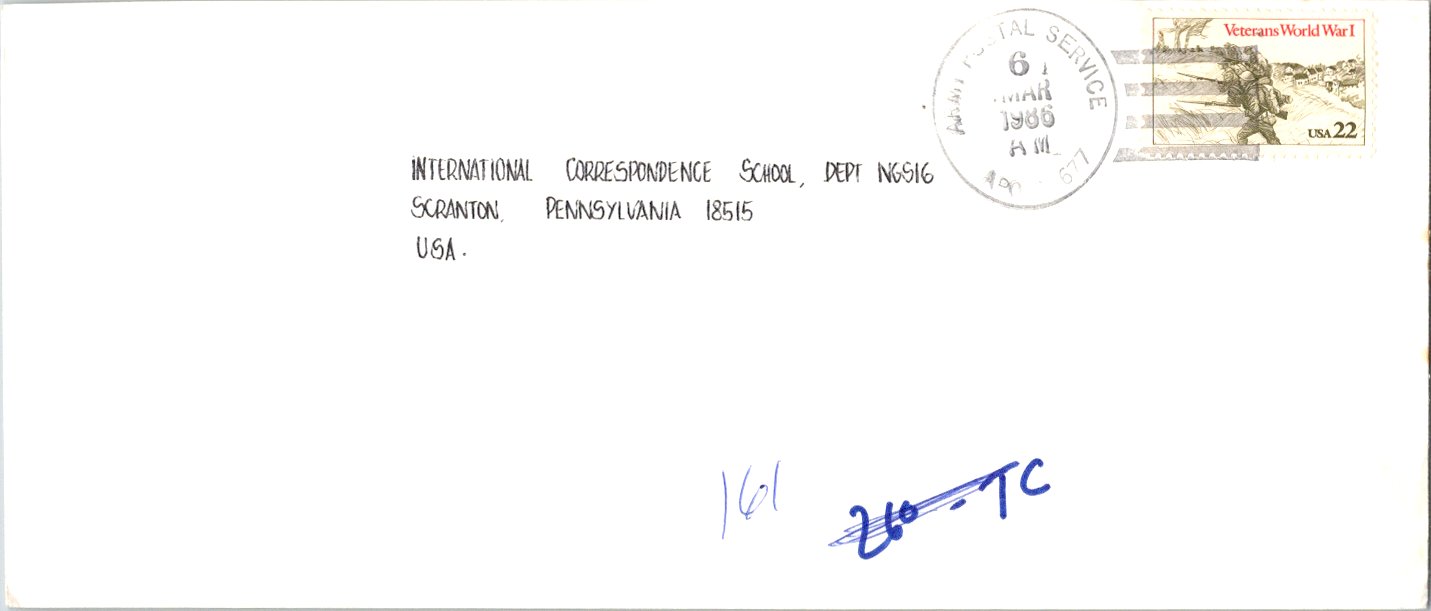 ARMY POSTAL SERVICE
6
MAR
1986
AM
APO 677
Veterans World War I
USA 22
INTERNATIONAL CORRESPONDENCE SCHOOL, DEPT NGS16
SCRANTON, PENNSYLVANIA 18515
USA.
161
260 - TC